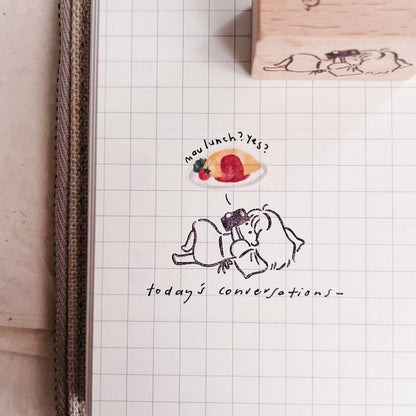 mau lunch? Yes?
today's conversations-